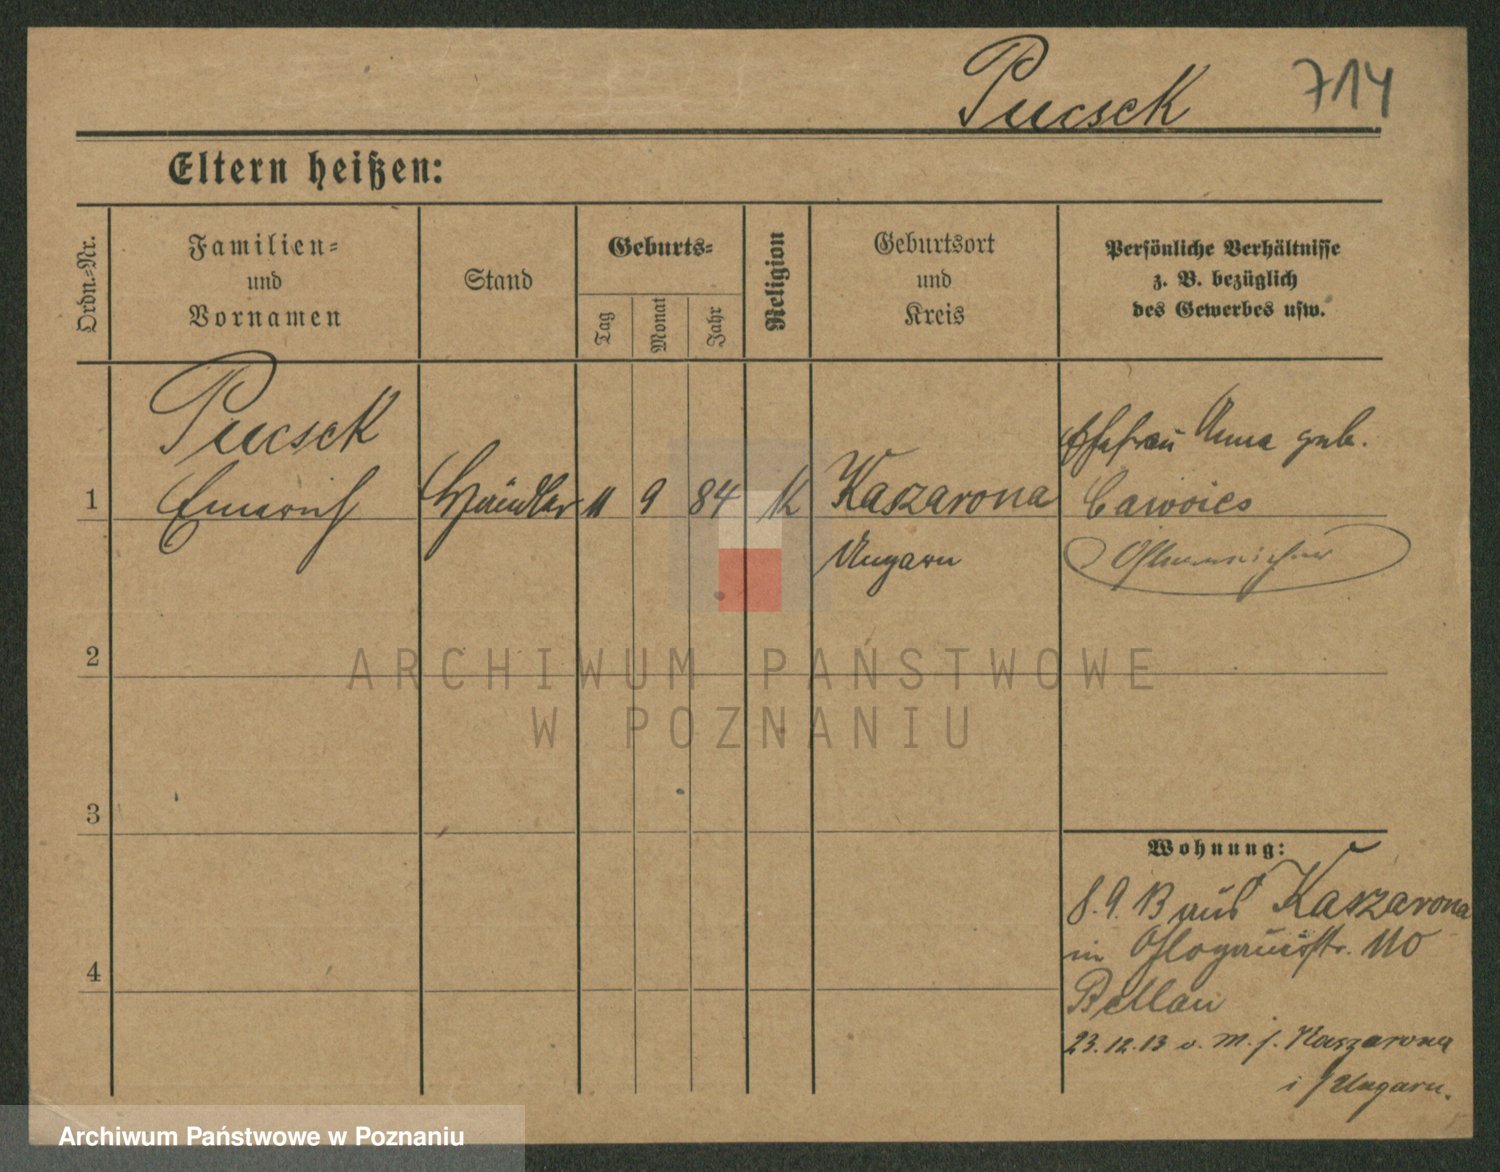 Pucsek 714
Eltern heißen:
Ordn.-Nr.
Familien-
und
Vornamen
Stand
Geburts-
Tag
Monat
Jahr
Religion
Geburtsort
und
Kreis
Persönliche Verhältnisse
z. B. bezüglich
des Gewerbes usw.
Pucsek
1 Emerich Händler 11 9 84 K Kaszarona
Ungarn
Ehefrau Anna geb.
2
3
4
Wohnung:
8.9.13 aus Kaszarona
in Glogauerstr. 110
Bellau
23.12.13 v. m. f. Kaszarona
i/Ungarn.
ARCHIWUM PAŃSTWOWE
W POZNANIU
Archiwum Państwowe w Poznaniu